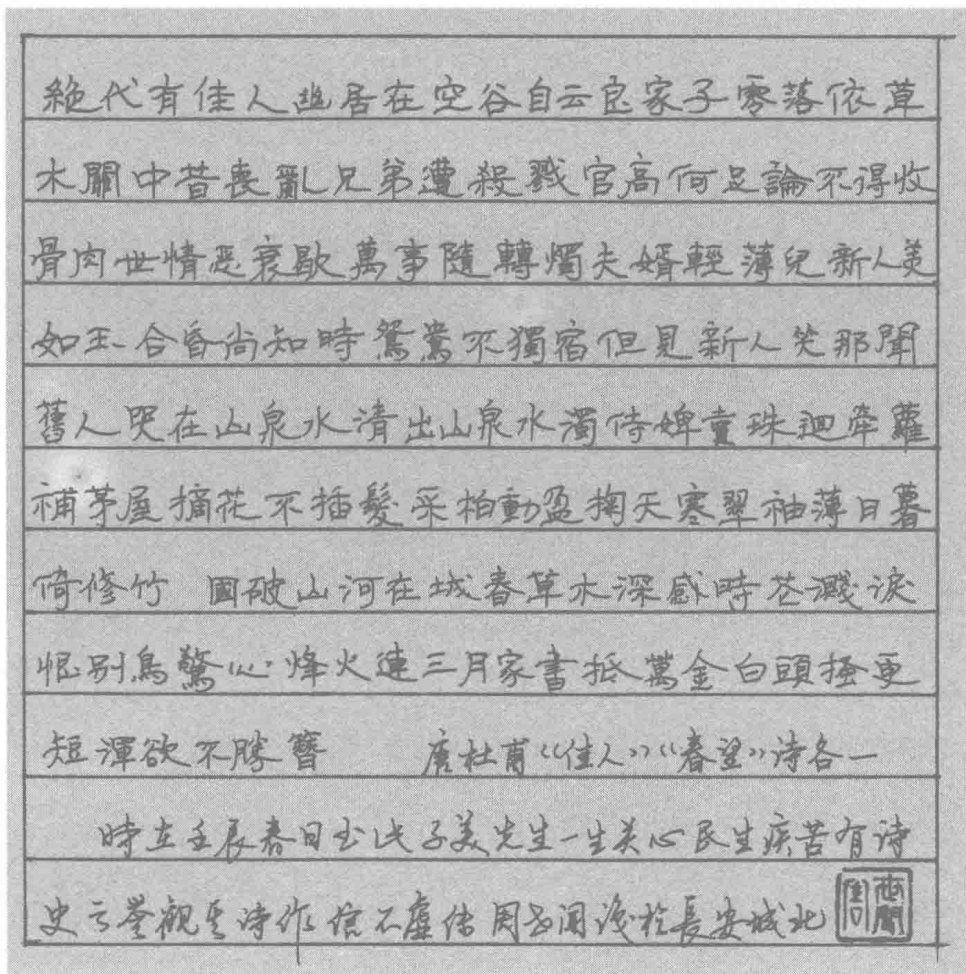 絶代有佳人幽居在空谷自云良家子零落依草
木關中昔喪亂兄弟遭殺戮官高何足論不得收
骨肉世情惡衰歇萬事隨轉燭夫婿輕薄兒新人美
如玉合昏尚知時鴛鴦不獨宿但見新人笑那聞
舊人哭在山泉水清出山泉水濁侍婢賣珠迴牽蘿
補茅屋摘花不插髮采柏動盈掬天寒翠袖薄日暮
倚修竹 國破山河在城春草木深感時花濺淚
恨别鳥驚心烽火連三月家書抵萬金白頭搔更
短渾欲不勝簪 唐杜甫《佳人》《春望》诗各一
時在壬辰春日書此子美先生一生关心民生疾苦有诗
史之譽觀其诗作信不虚传周世闻識於長安城北